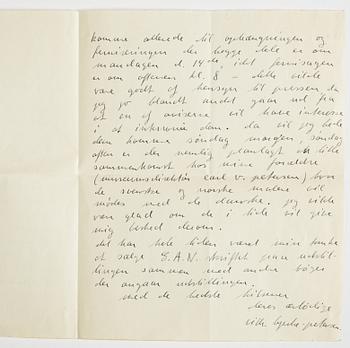 komme allerede til ophængningen og
ferniseringen der begge dele er om
mandagen d. 14de, idet ferniseringen
er om aftenen kl. 8 - dette vilde
være godt af hensyn til pressen da
jeg jo blandt andet gaar ud fra
at en af aviserne vil have interesse
i at interviewe dem. da vil jeg bede
dem komme søndag morgen, søndag
aften er der nemlig planlagt et lille
sammenkomst hos mine forældre
(museumsdirektør carl v. petersen) hvor
de svenske og norske malere vil
mødes med de danske. jeg vilde
være glad om de i tide vil give
mig besked derom.
det har hele tiden været min tanke
at sælge G.A.N. skriftet paa udstil-
lingen sammen med andre bøger
der angaar udstillingen.
med de bedste hilsener
deres ærbødige
vilh. bjerke-petersen.